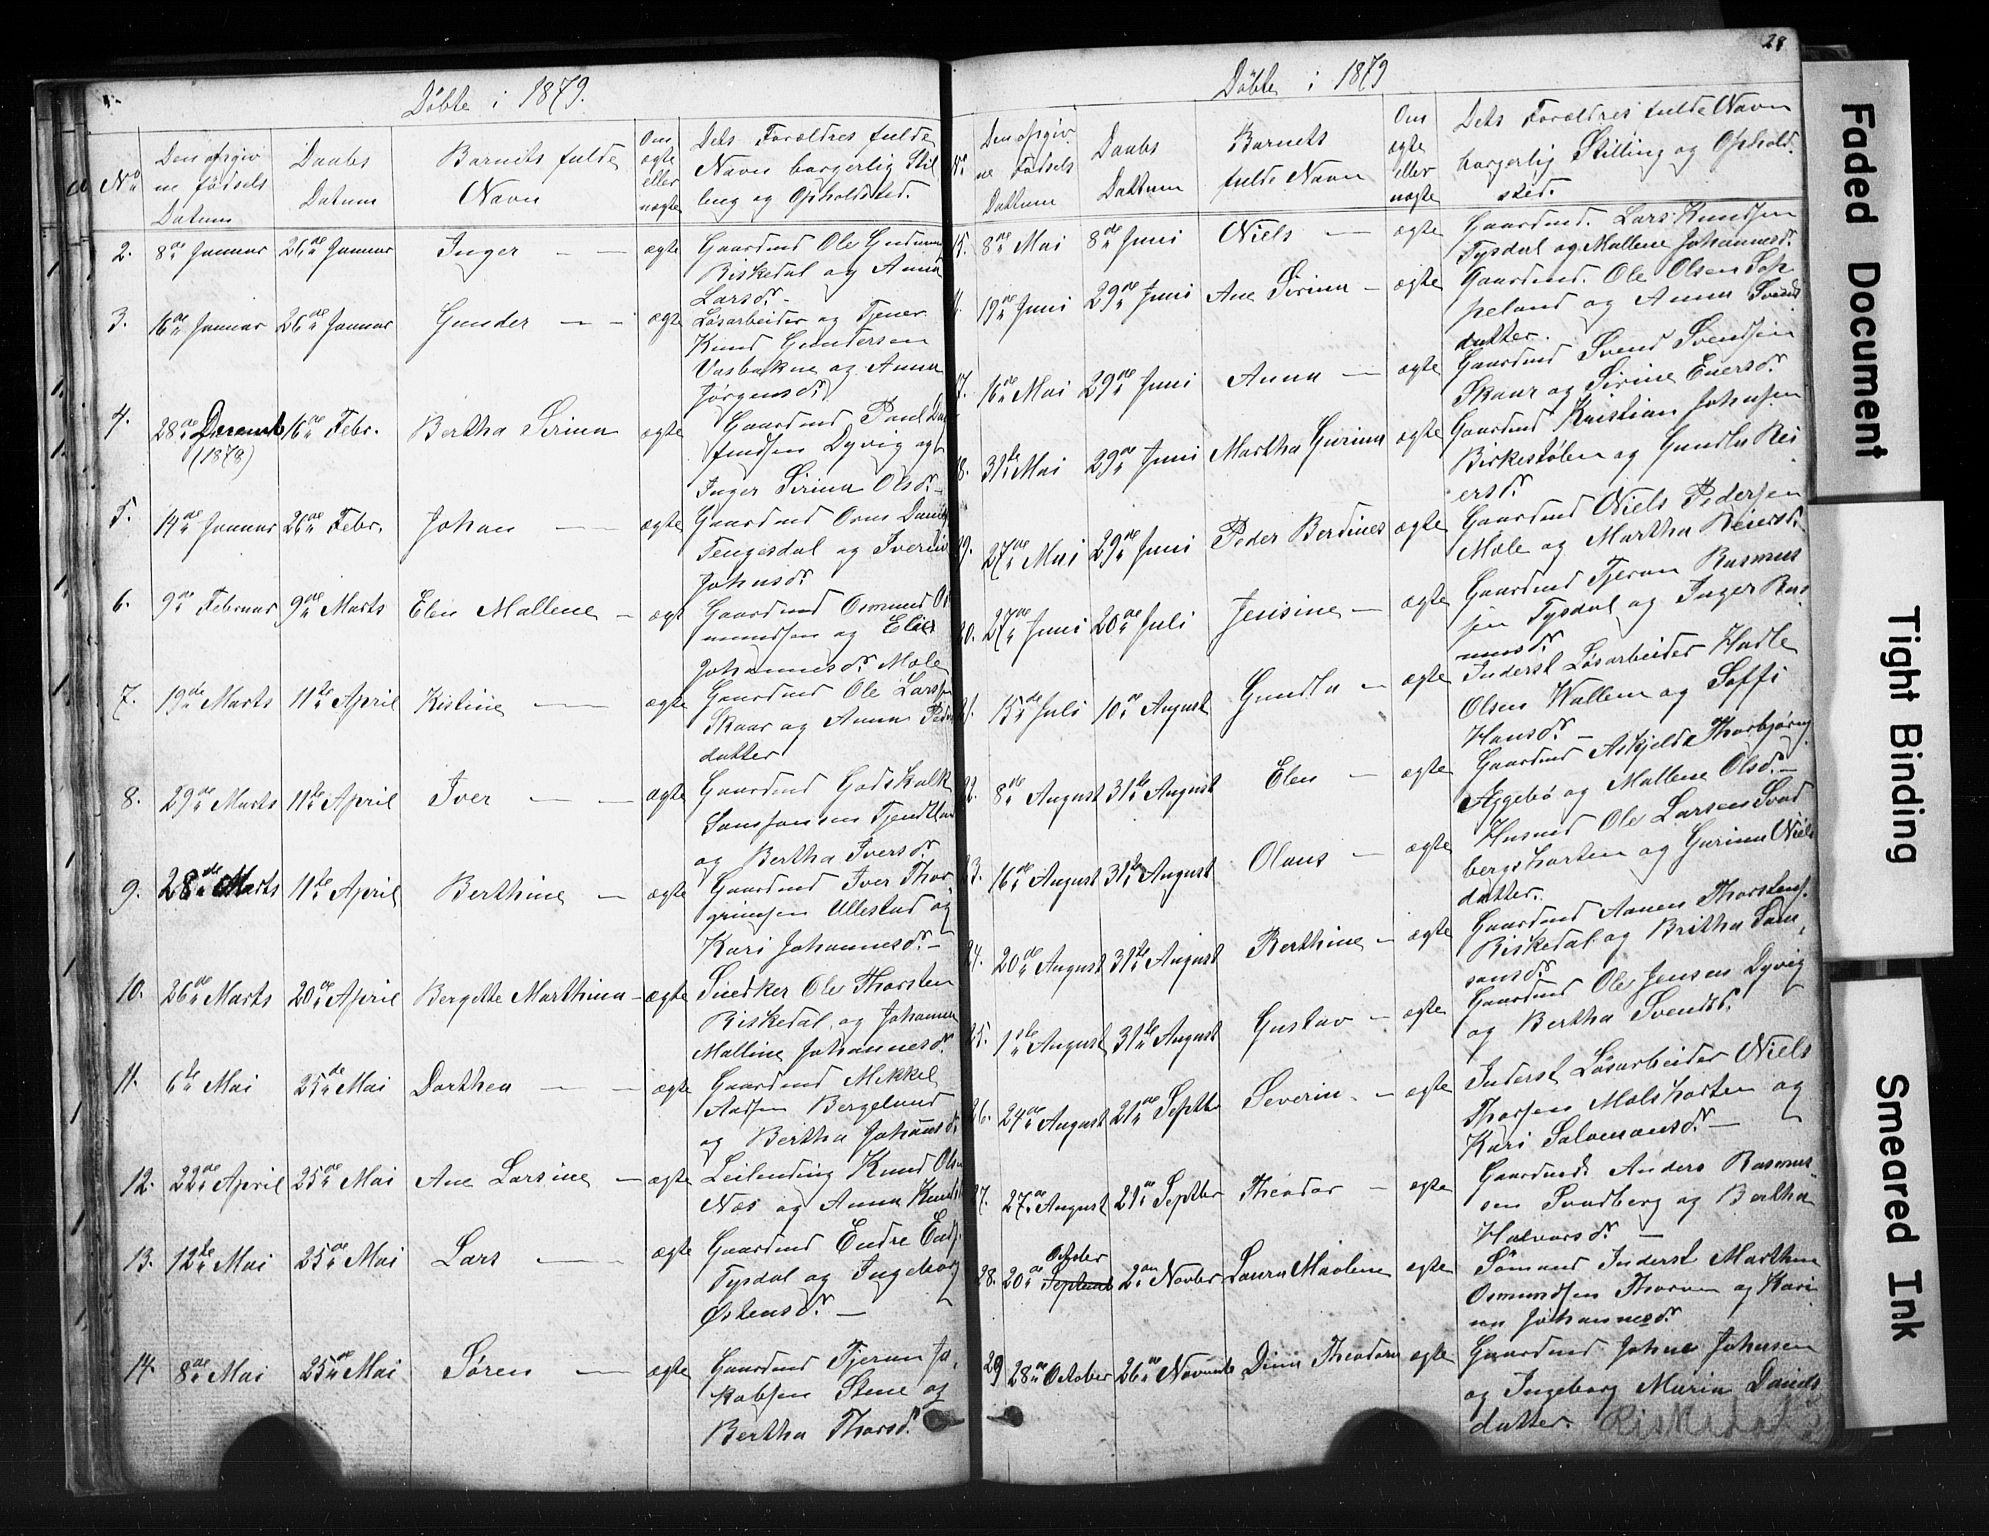 Döbte i 1879.
No
Den opgiv
ne födsels
Datum
Daabs
Datum
Barnets fulde
Navn
Om
ægte
eller
uægte
Dets Forældres fulde
Navn borgerlig Stil
ling og Opholdsted.
2. 8de Januar 26de Januar Inger — — ægte Gaardmd Ole Gudmun
Riskedal og Anna
Larsdr. —
3. 16de Januar 26de Januar Gunder — — ægte Løsarbeider og Tjener
Knud Gundersen
Vasbakne og Anna
Jørgensdr.
4. 28de Decemb 16de Febr. Bertha Sirina ægte Gaardmd Paul
(1878)
Dyvig og
Inger Sirina Olsdr. —
5. 14de Januar 26de Febr. Johan — — ægte Gaardmd Orm Daniels
Tengesdal og Iverine
Johnsdr.
6. 9de Februar 9de Marts Elen Mallene — ægte Gaardmd Osmund Os
mundsen og Elen
Johannesdr. Mæle
7. 19de Marts 11te April Kistine — ægte Gaardmd Ole Larsen
Skaar og Anna Peders
datter
8. 29de Marts 11te April Iver — — ægte Gaardmd Godskalk
Samsonsen Tjendtland
og Bertha Iversdr.
9. 28de Marts 11te April Berthine — ægte Gaardmd Iver Thor
grimsen Ullestad og
Kari Johannesdr. —
10. 26de Marts 20de April Bergette Marthina — ægte Snedker Ole Thorsten
Riskedal og Johanna
Malline Johannesdr.
11. 6te Mai 25de Mai Dorthea — — ægte Gaardmd Mikkel
Aadsen Bergeland
og Bertha Johansdr.
12. 22de April 25de Mai Ane Larsine — ægte Leilending Knud Olsen
Næs og Anna Knuds
13. 12te Mai 25de Mai Lars — ægte Gaardmd Endre Ends.
Tysdal og Ingeborg
Østensdr. —
14. 8de Mai 25de Mai Søren — ægte Gaardmd Tjeran Ja
kobsen Stene og
Bertha Thorsdr.
28
Döbte i 1879
No.
Den opgiv
ne Födsels
Dattum
Daabs
Dattum
Barnets
fulde Navn
Om
ægte
eller
uægte
Dets Forældres fulde Navn
borgerlig Stilling og Ophold.
sted.
15. 8de Mai 8de Juni Niels — ægte Gaardmd. Lars Knudsen
Tysdal og Mallene Johannesdr.
19de Juni 29de Juni Ane Sirina — ægte Gaardmd. Ole Olsen Sop
peland og Anna Svends
datter.
17. 16de Mai 29de Juni Anna — ægte Gaardmd Svend Svendsen
Skaar og Sirine Enersdr.
18. 31te Mai 29de Juni Martha Gurina ægte Gaardmd Kristian Johnsen
Birkestølen og Gundla Rei
ersdr.
19. 27de Mai 29de Juni Peder Berdines ægte Gaardmd Niels Pedersen
Mæle og Martha Reiersdr.
20. 27de Juni 20de Juli Jensine — ægte Gaardmd Tjeran Rasmus
sen Tysdal og Inger Ras
musdr.
21. 15de Juli 10de August Gundla — ægte Inderst Løsarbeider Hadle
Olsen Wallem og Soffi
Hansdr. —
22. 8de August 31te August Elen — ægte Gaardmd Askjeld Thorbjørns
Aggebø og Mallene Olsdr. —
23. 16de August 31te August Olaus — ægte Husmd Ole Larsen Svad
bergshorten og Gurina Niels
datter.
24. 20de August 31te August Berthine — ægte Gaardmd Aanen Thorstens.
Riskedal og Britha Sam
sonsdr.
25. 1ste August 31te August Gustav — ægte Gaardmd Ole Jensen Dyvig
og Bertha Svendsdr.
26. 24de August 21de Septbr Severin. — ægte Inderst Løsarbeider Niels
Thorsen Molshorten og
Kari Salomonsdr. —
27. 27de August 21de Septbr Theodor — ægte Gaardmd. Anders Rasmus
sen Svadberg og Bertha
Halvorsdr. —
October
28. 20de Septemb 2den Novbr Laura Maolene ægte Sömand Inderst Marthin
Osmundsen Thorven og Kari
na Johannesdr.
29 28de October 26de Novemb Dina Theodora ægte Gaardmd Johne Johnsen
og Ingeborg Maria Davids
datter. Riskedal
Faded Document
Tight Binding
Smeared Ink